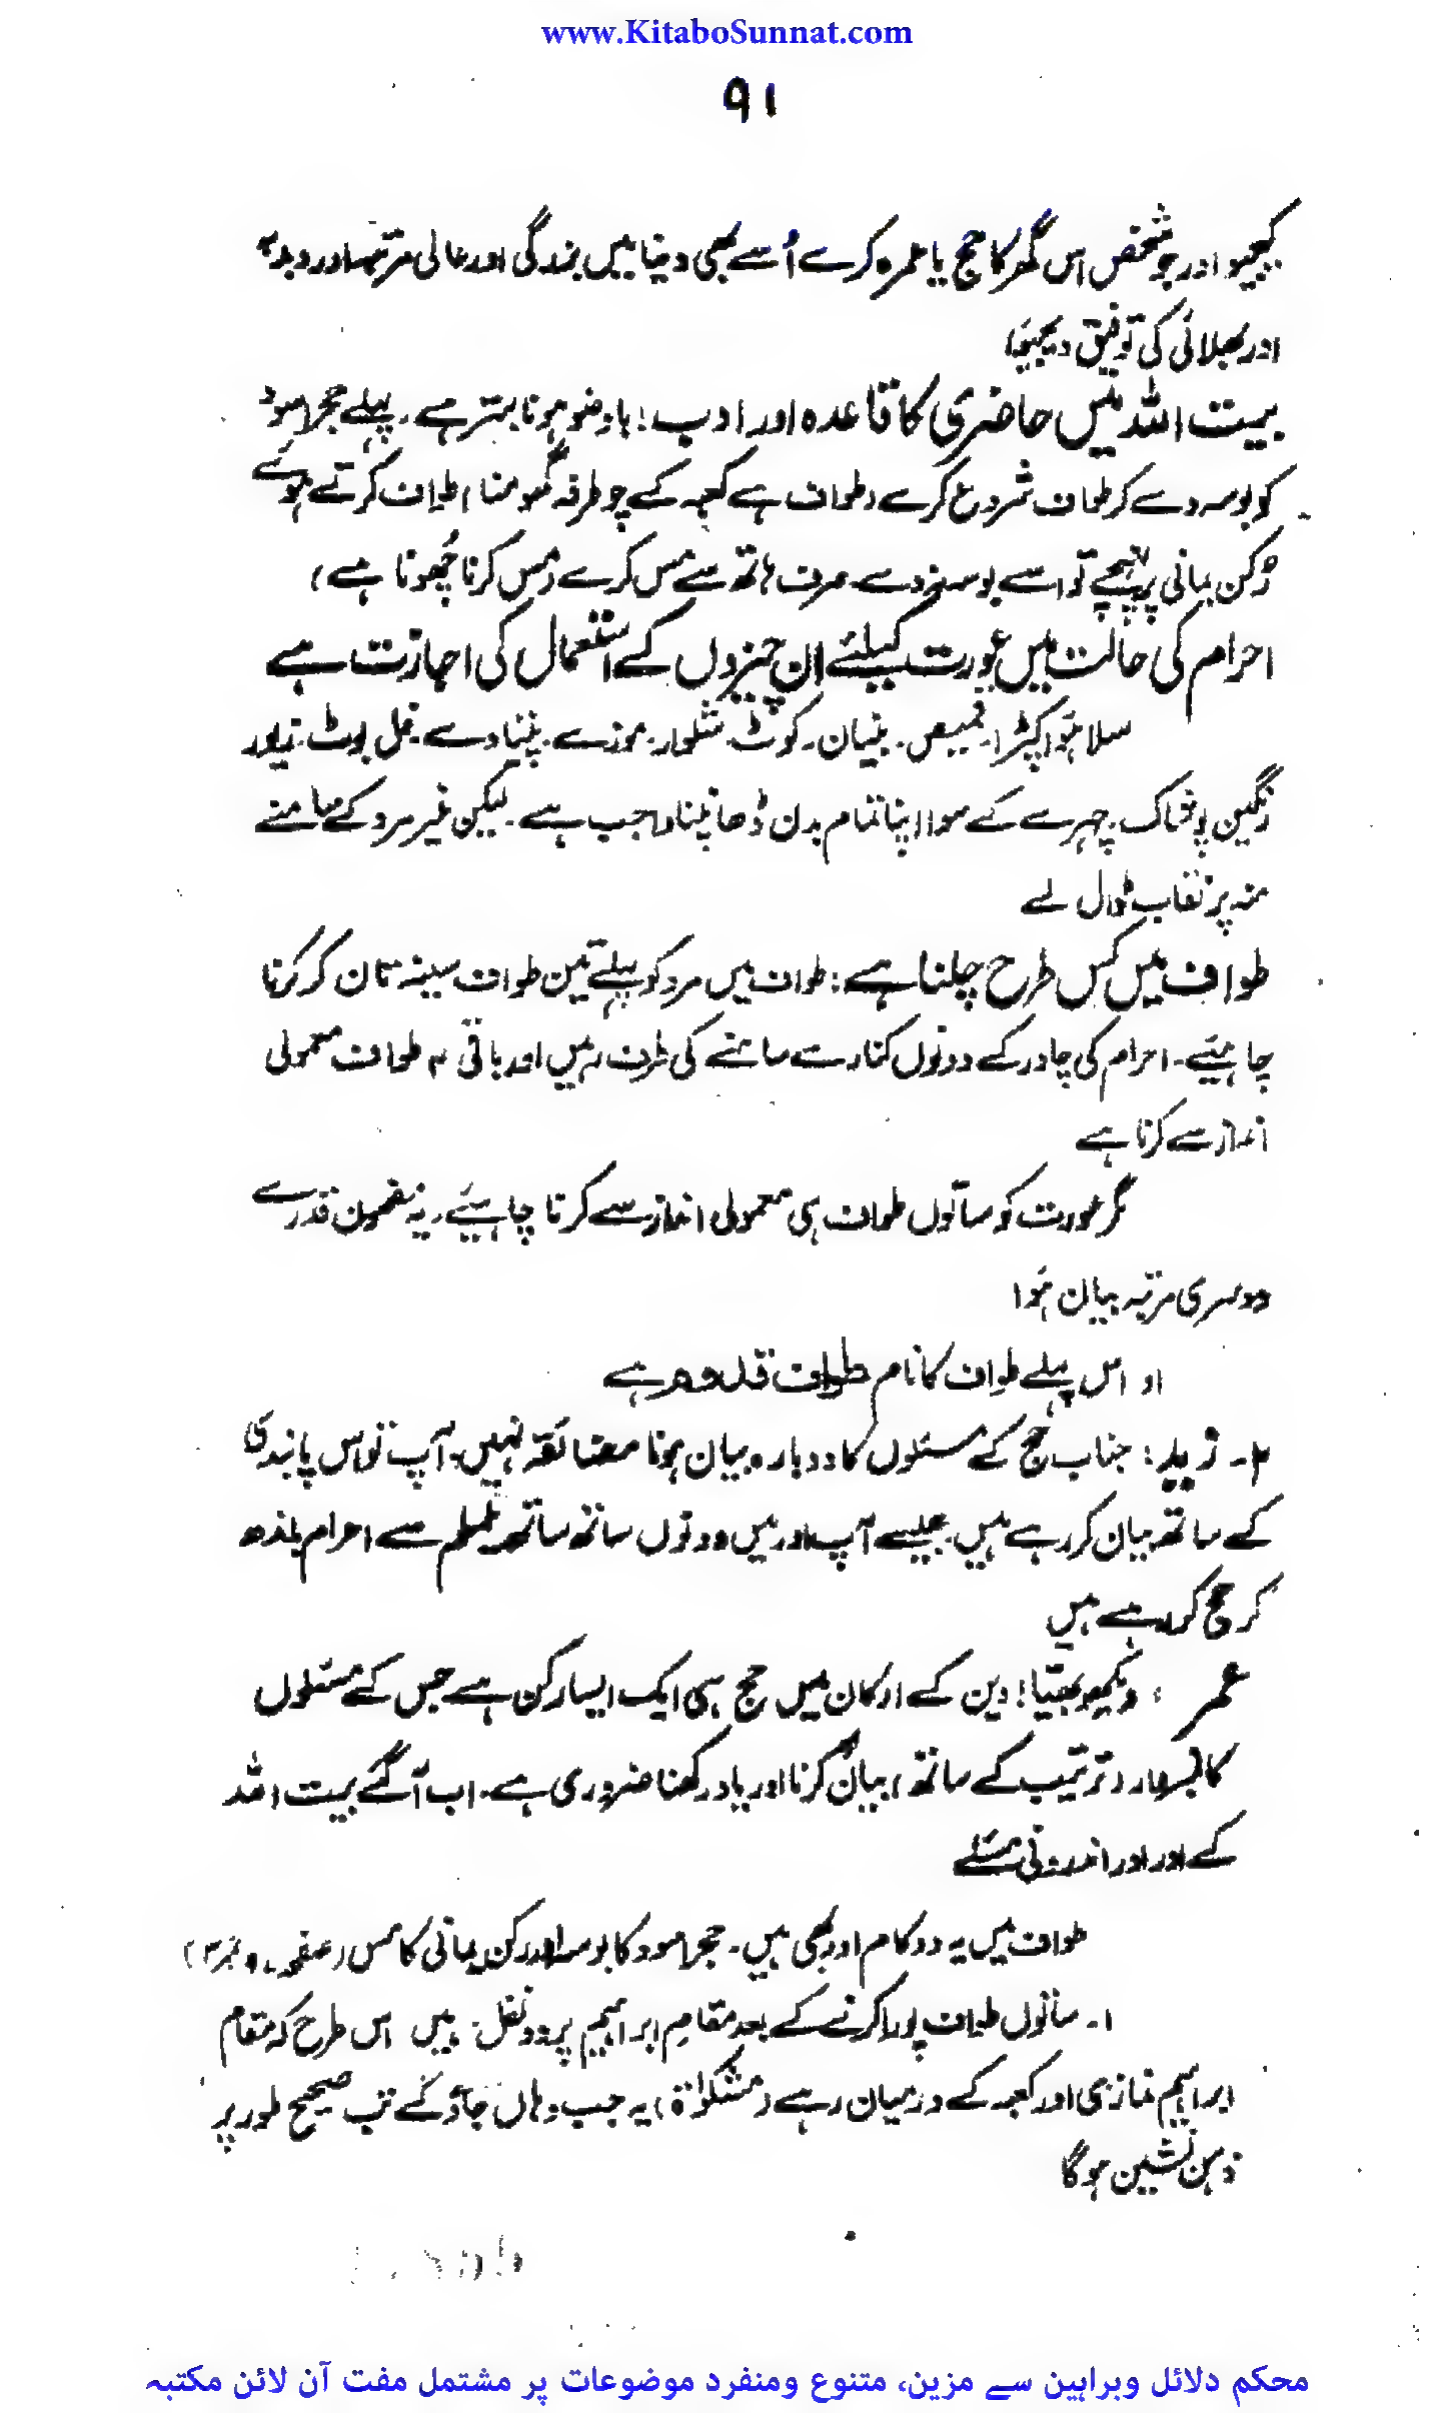 www.KitaboSunnat.com
۹۱
کیجیو اور جو شخص اس گھر کا حج یا عمرہ کرے اُسے بھی دنیا میں بزرگی اور عالی مرتبہ اور دبدبہ
اور بھلائی کی توفیق دیجیو)
بیت اللہ میں حاضری کا قاعدہ اور ادب ! باوضو ہونا بہتر ہے ۔ پہلے حجر اسود
کو بوسہ دے کر طواف شروع کرے (طواف ہے کعبہ کے چو طرفہ گھومنا) طواف کرتے ہوئے
رُکن یمانی پر پہنچے تو اسے بوسہ نہ دے ۔ صرف ہاتھ سے مس کرے (مس کرنا چُھونا ہے)
احرام کی حالت میں عورت کیلئے ان چیزوں کے استعمال کی اجازت ہے
سلا ہوَا کپڑا ۔ قمیص ۔ بنیان ۔ کوٹ ۔ شلوار ۔ موزے ۔ پنجادے ۔ فل بوٹ ۔ زیور
رنگین پوشاک ۔ چہرے کے سوا اپنا تمام بدن ڈھانپنا واجب ہے ۔ لیکن غیر مرد کے سامنے
منہ پر نقاب ڈال لے
طواف میں کس طرح چلنا ہے : طواف میں مرد کو پہلے تین طواف سینہ تان کر کرنا
چاہئیے ۔ احرام کی چادر کے دونوں کنارے سامنے کی طرف رہیں اور باقی ۴ طواف معمولی
انداز سے کرنا ہے
مگر عورت کو ساتوں طواف ہی معمولی انداز سے کرنا چاہئیے ۔ یہ مضمون قدرے
دوسری مرتبہ بیان ہُوا
او اس پہلے طواف کا نام طواف قدوم ہے
۲۔ زید : جناب حج کے مسئلوں کا دوبارہ بیان ہونا مضائقہ نہیں ۔ آپ تو اس پابندی
کے ساتھ بیان کر رہے ہیں جیسے آپ اور میں دونوں ساتھ ساتھ یلملم سے احرام باندھ
کر حج کر رہے ہیں
عمر : دیکھو بھیّا ! دین کے ارکان میں حج ہی ایک ایسا رکن ہے جس کے مسئلوں
کا سلسلہ وار (ترتیب کے ساتھ) بیان کرنا اور یاد رکھنا ضروری ہے ۔ اب آگئے بیت اللہ
کے اور اور اندرونی مسئلے
طواف میں یہ دو کام اور بھی ہیں ۔ حجر اسود کا بوسہ اور رکن یمانی کا مس (صفحہ
۱۔ ساتوں طواف پورا کرنے کے بعد مقامِ ابراہیم پر دو نفل ہیں اس طرح کہ مقام
ابراہیم نمازی اور کعبہ کے درمیان رہے (مشکوٰۃ) یہ جب وہاں جاؤ گے تب صحیح طور پر
ذہن نشین ہوگا
محکم دلائل وبراہین سے مزین، متنوع ومنفرد موضوعات پر مشتمل مفت آن لائن مکتبہ